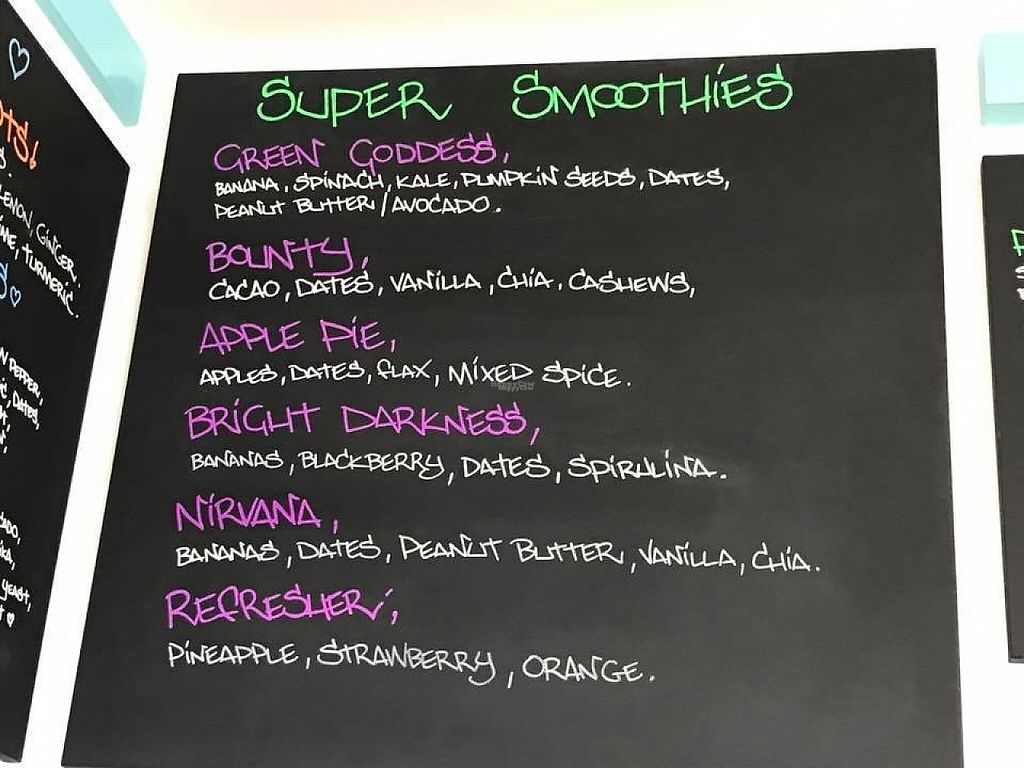 SUPER SMOOTHIES
GREEN GODDESS,
BANANA, SPINACH, KALE, PUMPKIN SEEDS, DATES,
PEANUT BUTTER / AVOCADO.
BOUNTY,
CACAO, DATES, VANILLA, CHIA, CASHEWS,
APPLE PIE,
APPLES, DATES, FLAX, MIXED SPICE.
BRIGHT DARKNESS,
BANANAS, BLACKBERRY, DATES, SPIRULINA.
NIRVANA,
BANANAS, DATES, PEANUT BUTTER, VANILLA, CHIA.
REFRESHER,
PINEAPPLE, STRAWBERRY, ORANGE.
LEMON, GINGER,
TURMERIC.
PEPPER,
DATES,
YEAST,
HappyCow